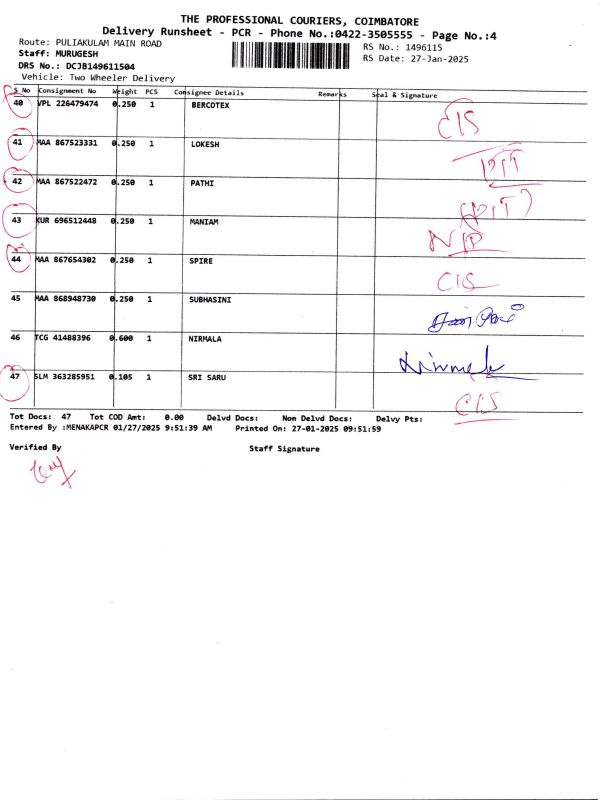 THE PROFESSIONAL COURIERS, COIMBATORE
Delivery Runsheet - PCR - Phone No.:0422-3505555 - Page No.:4
Route: PULIAKULAM MAIN ROAD
RS No.: 1496115
Staff: MURUGESH
RS Date: 27-Jan-2025
DRS No.: DCJB149611504
Vehicle: Two Wheeler Delivery
S No Consignment No Weight PCS Consignee Details Remarks Seal & Signature
40 VPL 226479474 0.250 1 BERCOTEX CIS
41 MAA 867523331 0.250 1 LOKESH
42 MAA 867522472 0.250 1 PATHI
43 KUR 696512448 0.250 1 MANIAM
44 MAA 867654302 0.250 1 SPIRE CIS
45 MAA 868948730 0.250 1 SUBHASINI
46 TCG 41488396 0.600 1 NIRMALA Nirmala
47 SLM 363285951 0.105 1 SRI SARU CIS
Tot Docs: 47 Tot COD Amt: 0.00 Delvd Docs: Non Delvd Docs: Delvy Pts:
Entered By :MENAKAPCR 01/27/2025 9:51:39 AM Printed On: 27-01-2025 09:51:59
Verified By Staff Signature